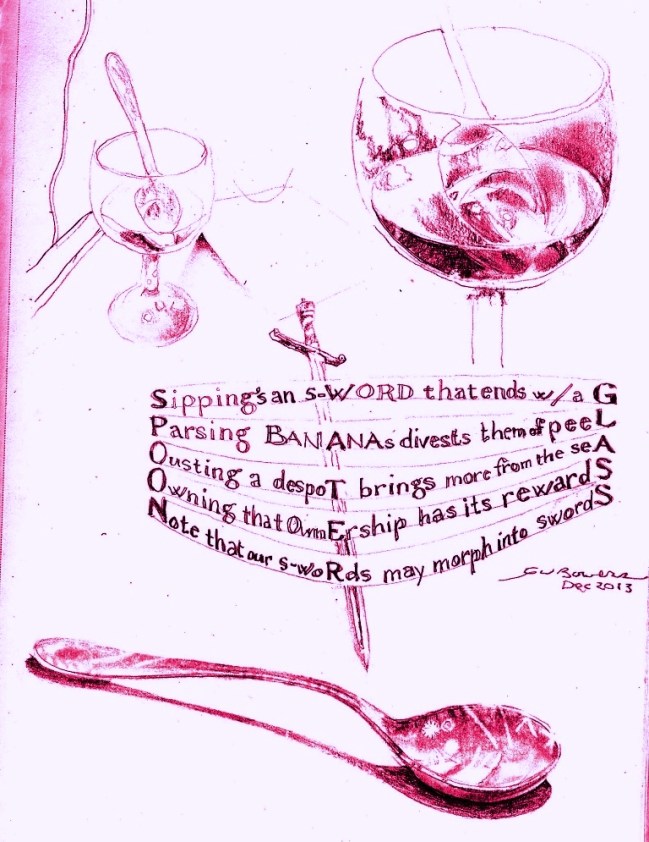 Sipping's an s-WORD that ends w/a G
Parsing BANANAs divests them of peeL
Ousting a despoT brings more from the seA
Owning that OwnErship has its rewardS
Note that our s-woRds may morph into swordS
Dec 2013